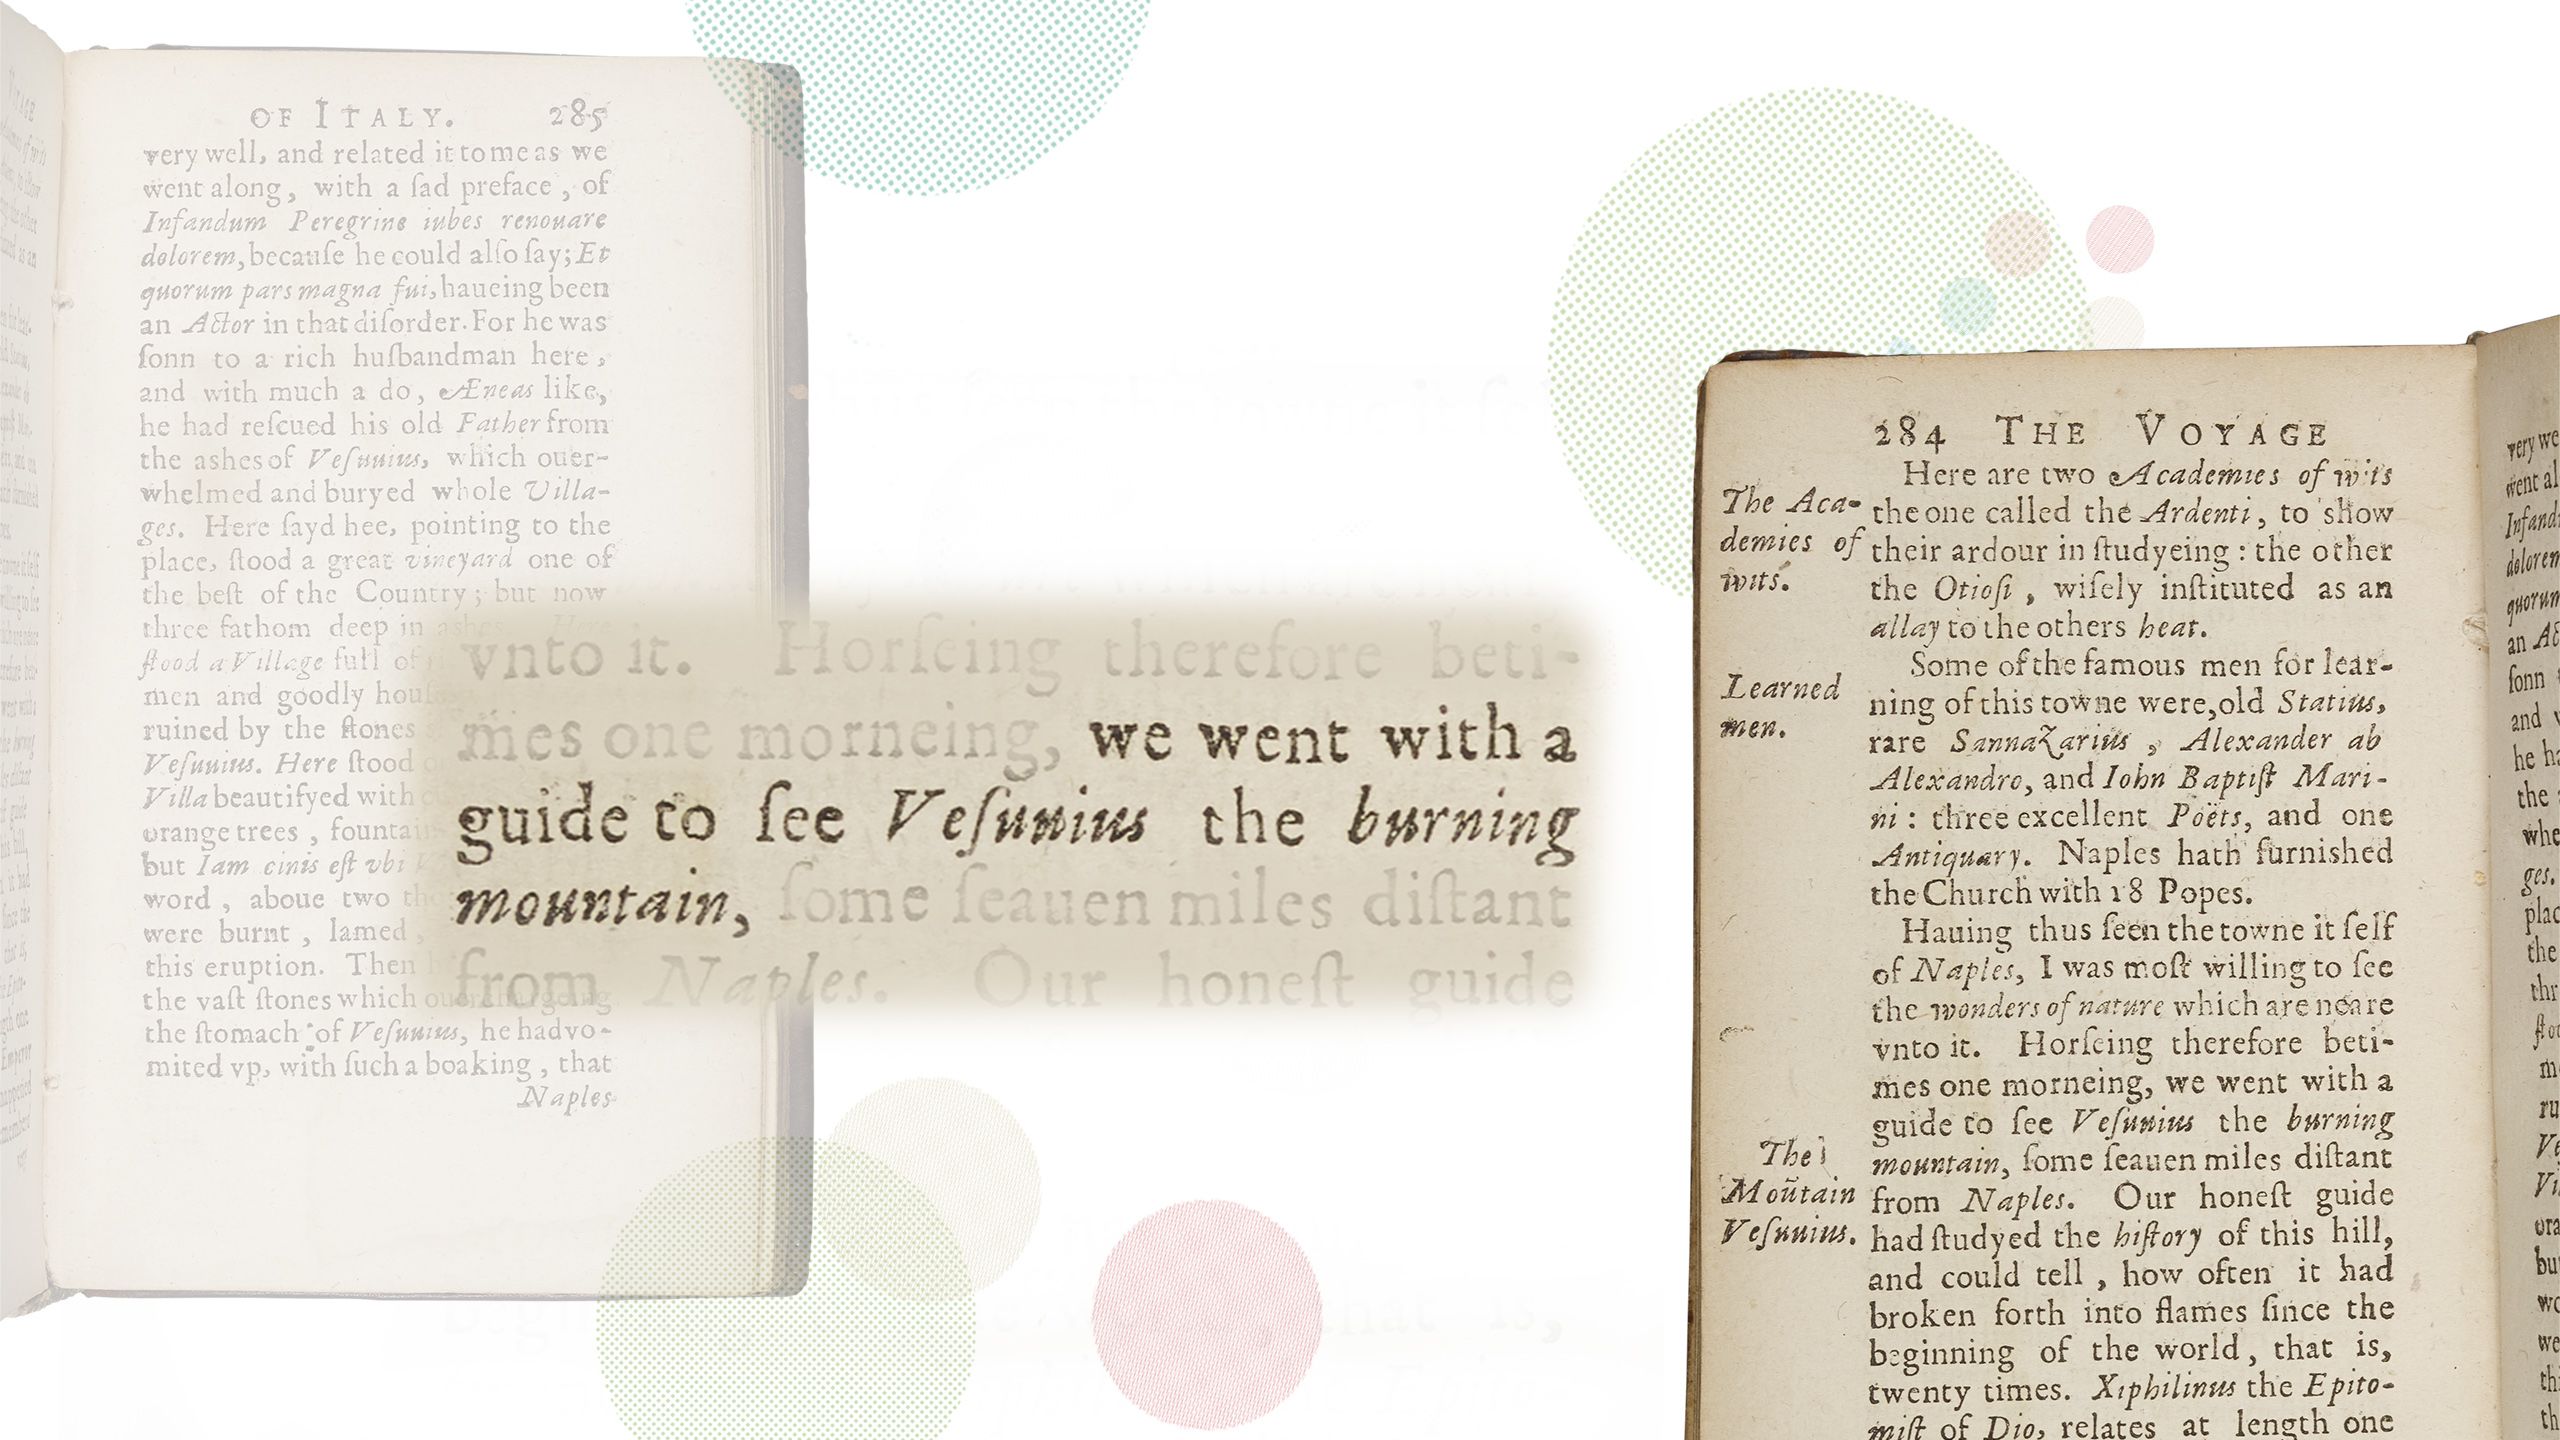 OF ITALY. 285
very well, and related it to me as we
went along, with a ſad preface, of
Infandum Peregrine iubes renouare
dolorem, becauſe he could alſo ſay; Et
quorum pars magna fui, haueing been
an Actor in that diſorder. For he was
ſonn to a rich huſbandman here,
and with much a do, Æneas like,
he had reſcued his old Father from
the ashes of Veſuuius, which ouer-
whelmed and buryed whole Villa-
ges. Here ſayd hee, pointing to the
place, ſtood a great vineyard one of
the beſt of the Country; but now
three fathom deep in ashes. Here
ſtood a Village full of
men and goodly
ruined by the ſtones
Veſuuius. Here ſtood
Villa beautifyed with
orange trees,
but Iam cinis eſt vbi
word, aboue two
were burnt, lamed,
this eruption. Then
the vaſt ſtones which ouerchargeing
the ſtomach of Veſuuius, he had vo-
mited vp, with ſuch a boaking, that
Naples
vnto it. Horſeing therefore beti-
mes one morneing, we went with a
guide to ſee Veſuuius the burning
mountain, ſome ſeauen miles diſtant
from Naples. Our honeſt guide
284 THE VOYAGE
Here are two Academies of wits
the one called the Ardenti, to show
their ardour in ſtudyeing: the other
the Otioſi, wiſely inſtituted as an
allay to the others heat.
Some of the famous men for lear-
ning of this towne were, old Statius,
rare Sannazarius, Alexander ab
Alexandro, and Iohn Baptiſt Mari-
ni: three excellent Poëts, and one
Antiquary. Naples hath furnished
the Church with 18 Popes.
Hauing thus ſeen the towne it ſelf
of Naples, I was moſt willing to ſee
the wonders of nature which are neare
vnto it. Horſeing therefore beti-
mes one morneing, we went with a
guide to ſee Veſuuius the burning
mountain, ſome ſeauen miles diſtant
from Naples. Our honeſt guide
had ſtudyed the hiſtory of this hill,
and could tell, how often it had
broken forth into flames ſince the
beginning of the world, that is,
twenty times. Xiphilinus the Epito-
miſt of Dio, relates at length one
The Aca-
demies of
wits.
Learned
men.
The
Moũtain
Veſuuius.